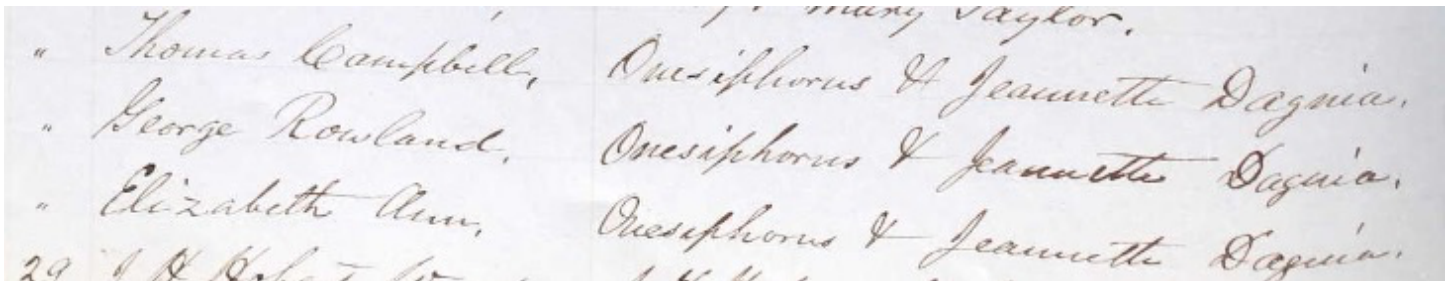 Mary Taylor.
" Thomas Campbell, Onesiphorus & Jeannette Dagnia.
" George Rowland, Onesiphorus & Jeannette Dagnia.
" Elizabeth Ann, Onesiphorus & Jeannette Dagnia.
29 J H